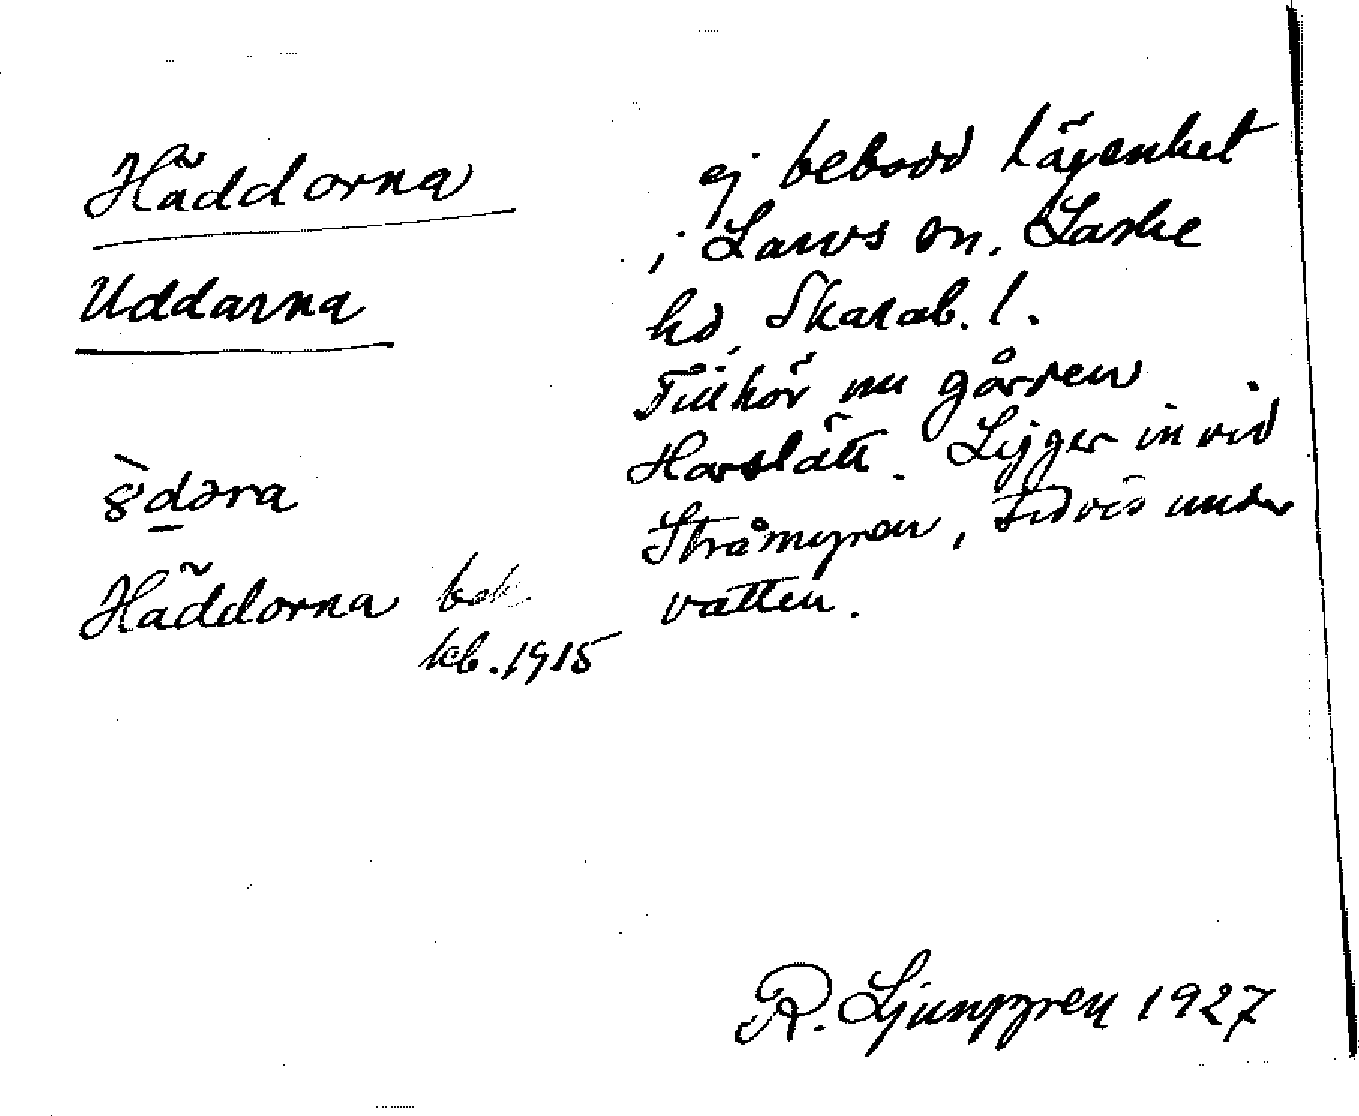 Häddorna
Uddarna
ədəra
Häddorna bok
kb. 1915
ej bebodd lägenhet
i Larvs sn. Laske
hd, Skarab. l.
Tillhör nu gården
Harslätt. Ligger in vid
Stråmyren, tidvis under
vatten.
R. Ljunggren 1927